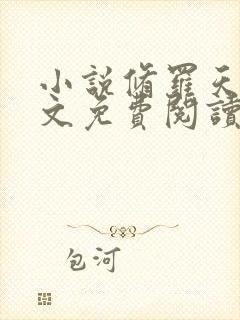 小說脩羅天
文免費閱讀
包河